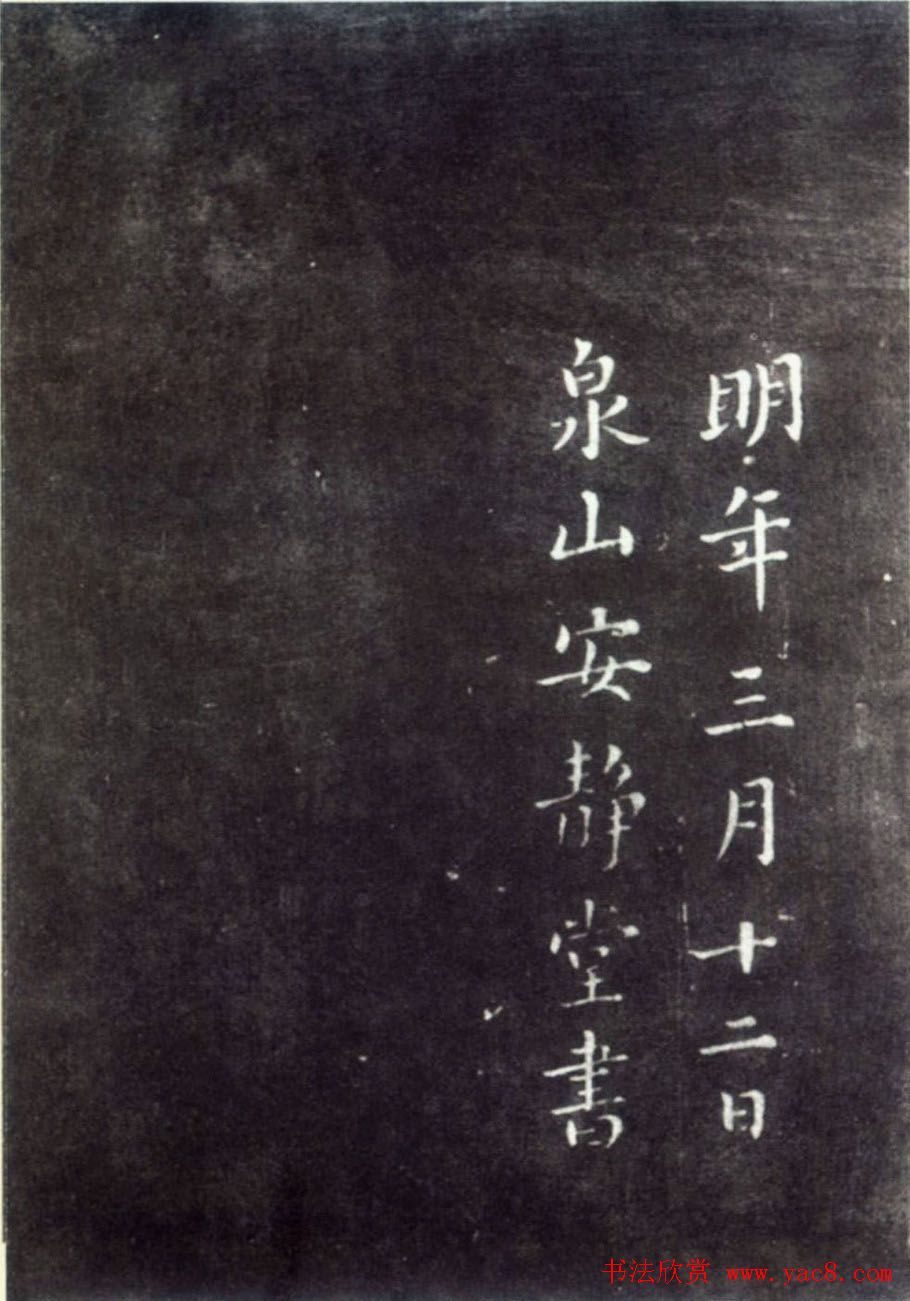 明年三月十二日
泉山安静堂書
书法欣赏 www.yac8.com